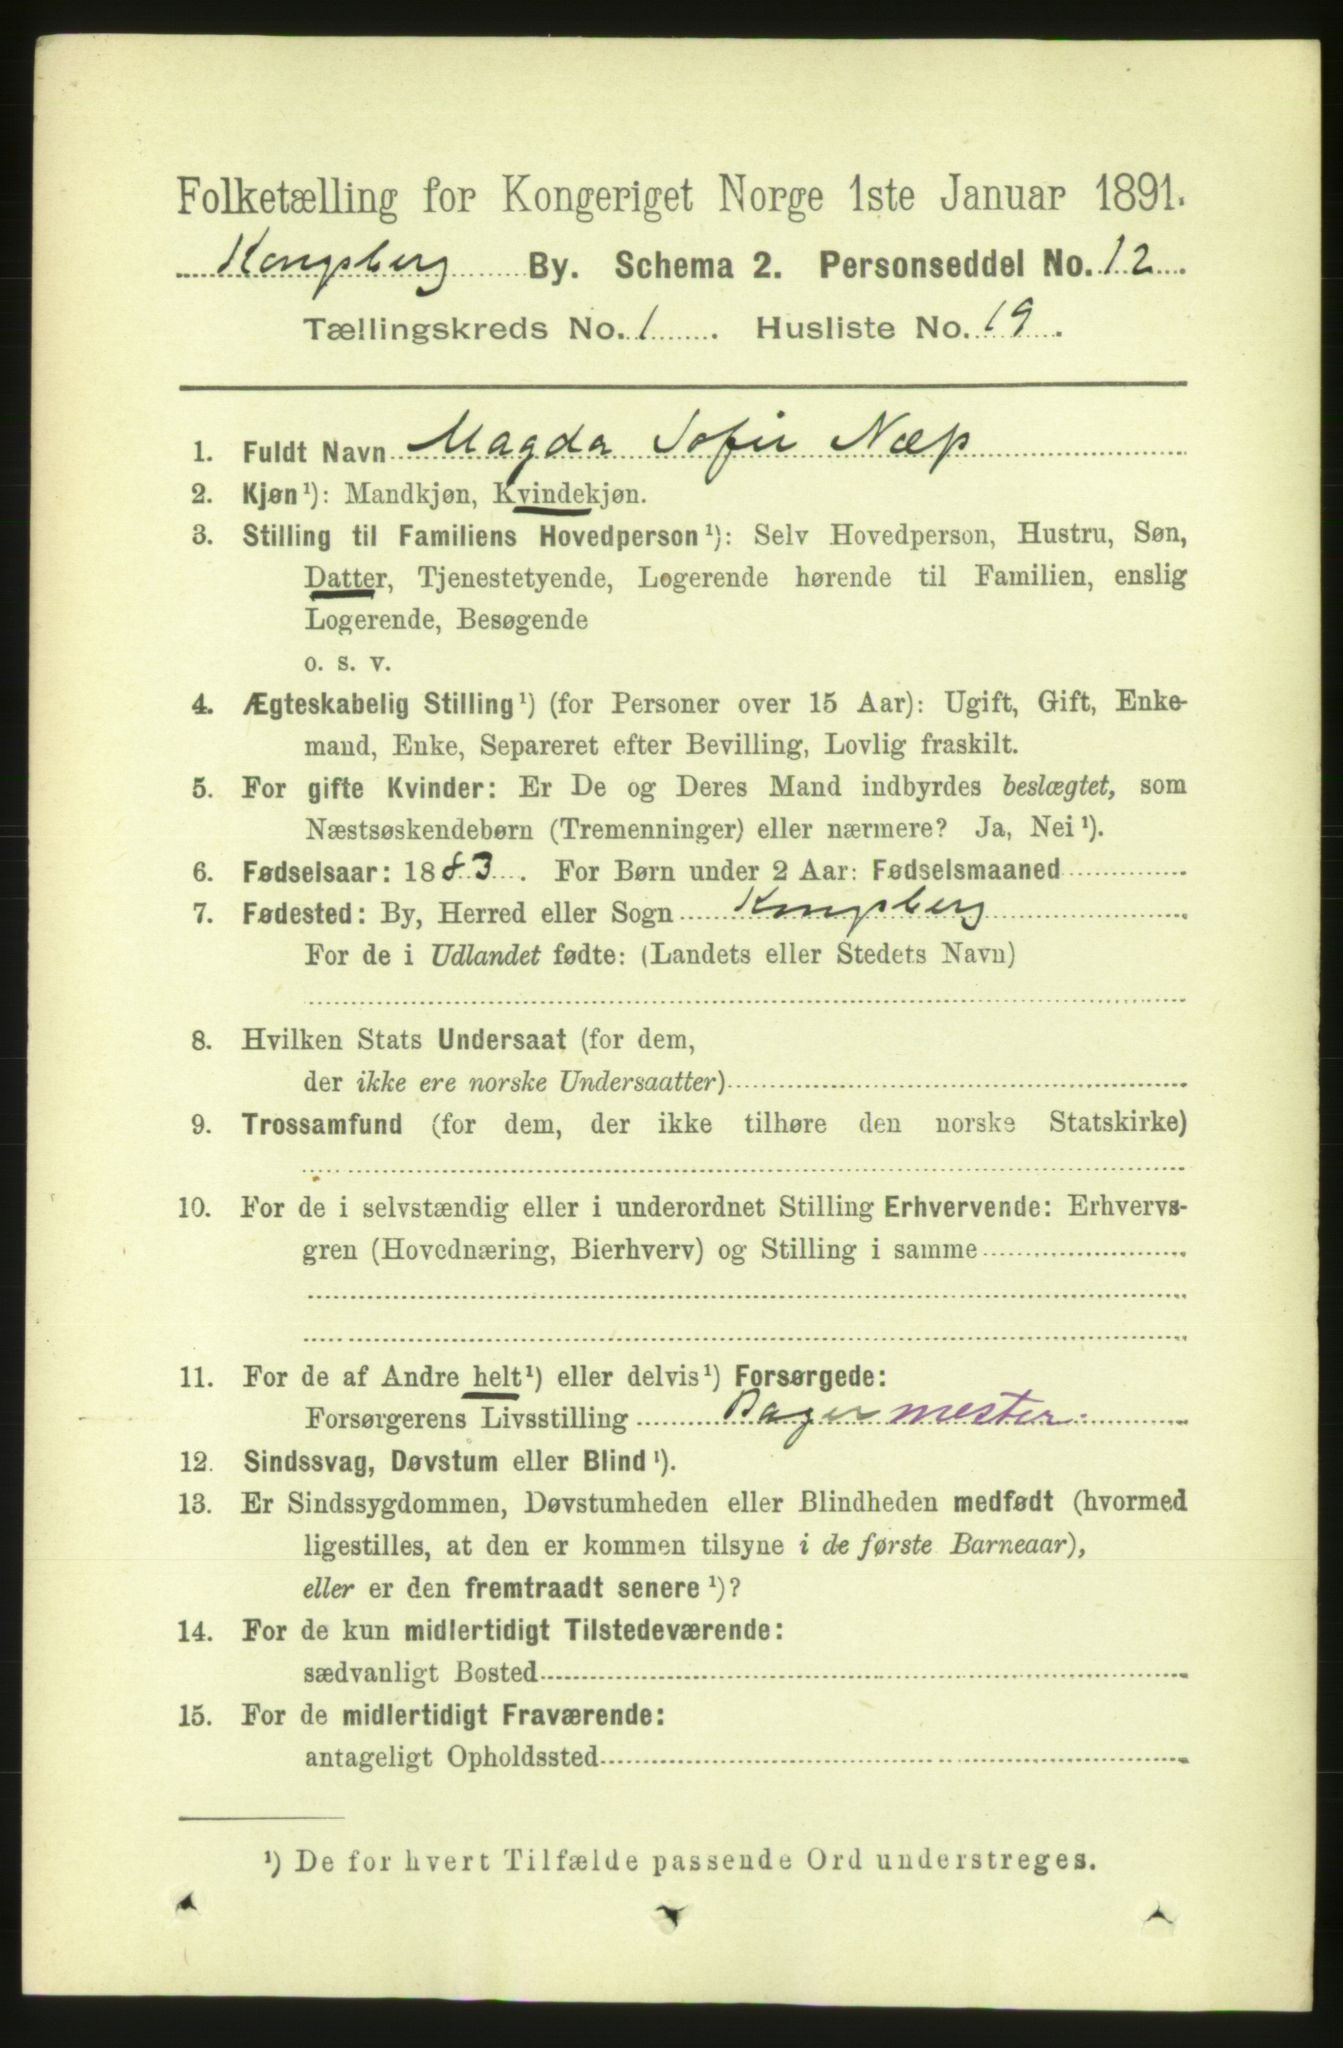 Folketælling for Kongeriget Norge 1ste Januar 1891.
Kongsberg By. Schema 2. Personseddel No. 12.
Tællingskreds No. 1. Husliste No. 19.
1. Fuldt Navn Magda Sofie Næp
2. Kjøn ¹): Mandkjøn, Kvindekjøn.
3. Stilling til Familiens Hovedperson ¹): Selv Hovedperson, Hustru, Søn,
Datter, Tjenestetyende, Logerende hørende til Familien, enslig
Logerende, Besøgende
o. s. v.
4. Ægteskabelig Stilling ¹) (for Personer over 15 Aar): Ugift, Gift, Enke-
mand, Enke, Separeret efter Bevilling, Lovlig fraskilt.
5. For gifte Kvinder: Er De og Deres Mand indbyrdes beslægtet, som
Næstsøskendebørn (Tremenninger) eller nærmere? Ja, Nei ¹).
6. Fødselsaar: 1883. For Børn under 2 Aar: Fødselsmaaned
7. Fødested: By, Herred eller Sogn Kongsberg
For de i Udlandet fødte: (Landets eller Stedets Navn)
8. Hvilken Stats Undersaat (for dem,
der ikke ere norske Undersaatter)
9. Trossamfund (for dem, der ikke tilhøre den norske Statskirke)
10. For de i selvstændig eller i underordnet Stilling Erhvervende: Erhvervs-
gren (Hovednæring, Bierhverv) og Stilling i samme
11. For de af Andre helt ¹) eller delvis ¹) Forsørgede:
Forsørgerens Livsstilling Bagermester.
12. Sindssvag, Døvstum eller Blind ¹).
13. Er Sindssygdommen, Døvstumheden eller Blindheden medfødt (hvormed
ligestilles, at den er kommen tilsyne i de første Barneaar),
eller er den fremtraadt senere ¹)?
14. For de kun midlertidigt Tilstedeværende:
sædvanligt Bosted
15. For de midlertidigt Fraværende:
antageligt Opholdssted
¹) De for hvert Tilfælde passende Ord understreges.